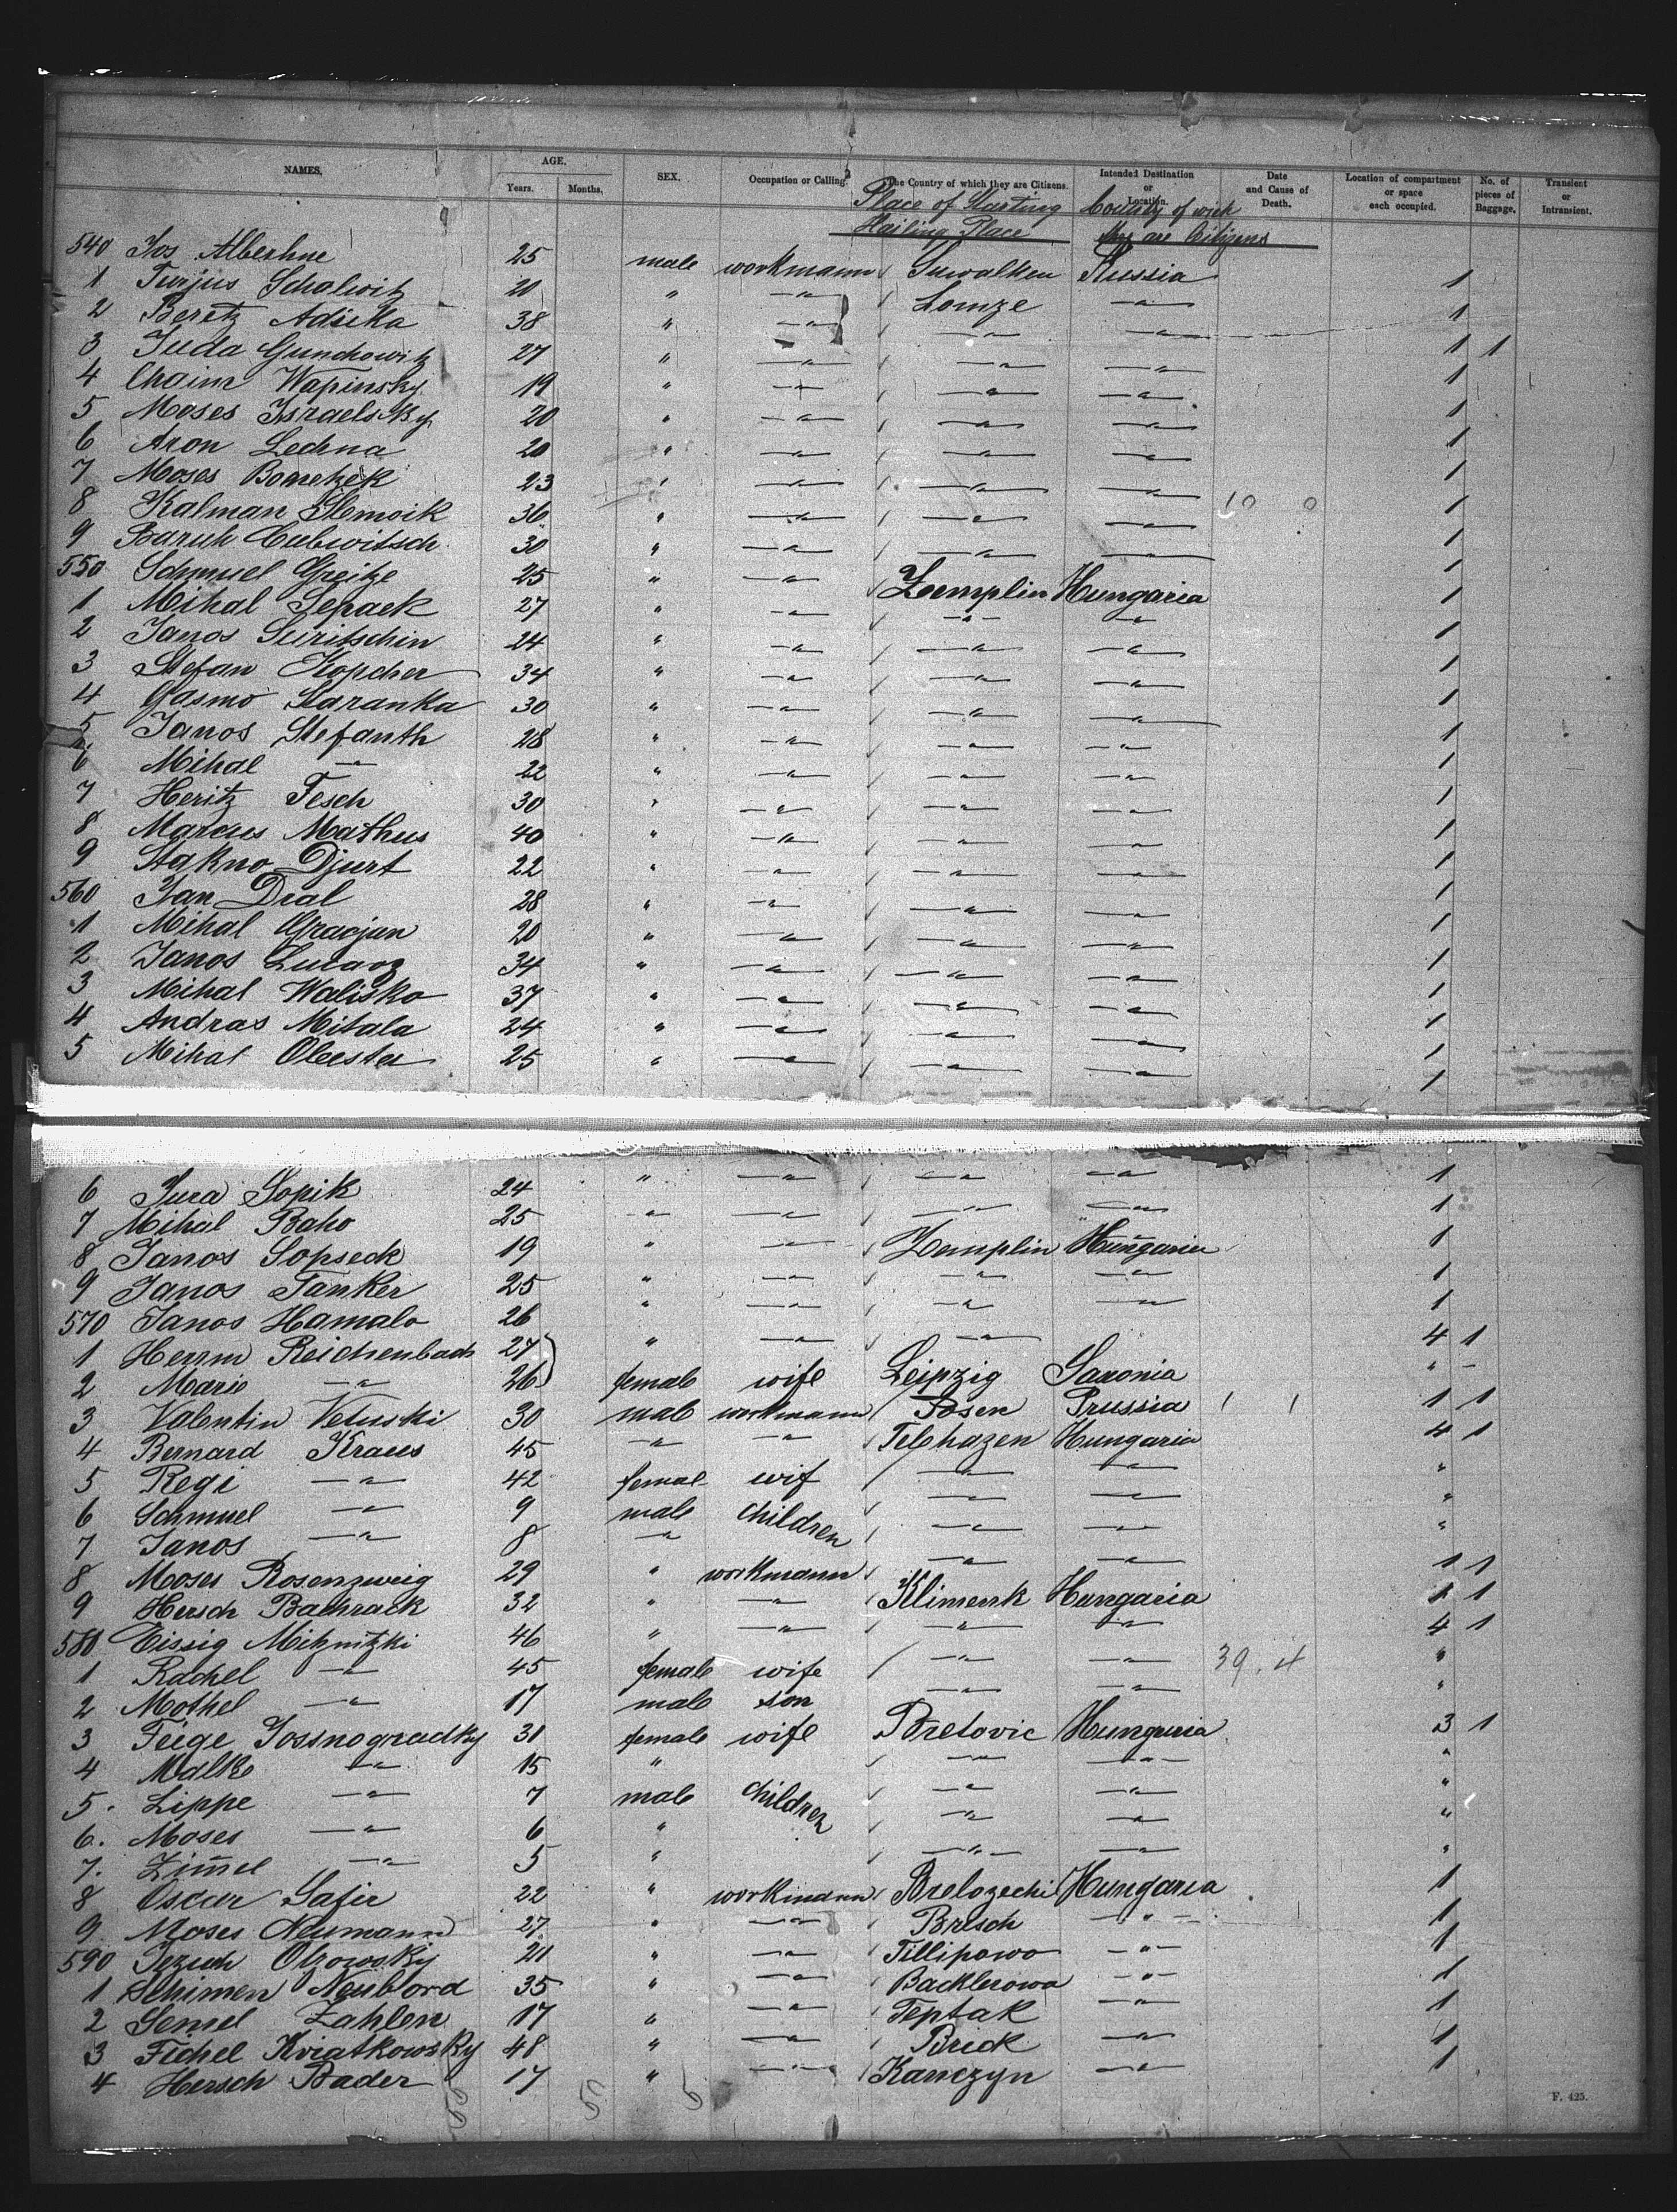 NAMES. AGE. Years. Months. SEX. Occupation or Calling. The Country of which they are Citizens. Intended Destination or Location. Date and Cause of Death. Location of compartment or space each occupied. No. of pieces of Baggage. Transient or Intransient.
Place of Starting Country of wich
Hailing Place they are Citizens
540 Jos Albeshne 25 male workmann Suwalken Russia 1
1 Turjus Schalwitz 20 " —"— Lomze —"— 1
2 Beretz Adsika 38 " —"— —"— —"— 1 1
3 Juda Gunchowitz 27 " —"— —"— —"— 1
4 Chaim Wapinsky 19 " —"— —"— —"— 1
5 Moses Israelsky 20 " —"— —"— —"— 1
6 Aron Ledna 20 " —"— —"— —"— 1
7 Moses 23 " —"— —"— —"— 1
8 Kalman Slemoik 36 " —"— —"— —"— 1
9 Baruh Cubwitsch 30 " —"— —"— —"— 1
550 Schmuel Greitze 25 " —"— Zemplin Hungaria 1
1 Mihal Sepack 27 " —"— —"— —"— 1
2 Janos Suritschin 24 " —"— —"— —"— 1
3 Stefan Kopcher 34 " —"— —"— —"— 1
4 Gasmo Staranka 30 " —"— —"— —"— 1
5 Janos Stefanth 28 " —"— —"— —"— 1
6 Mihal — 22 " —"— —"— —"— 1
7 Heritz Tesch 30 " —"— —"— —"— 1
8 Marcus Mathus 40 " —"— —"— —"— 1
9 Stakno Djurt 22 " —"— —"— —"— 1
560 Jan Dral 28 " —"— —"— —"— 1
1 Mihal Gracjan 20 " —"— —"— —"— 1
2 Janos Lucacz 34 " —"— —"— —"— 1
3 Mihal Walisko 37 " —"— —"— —"— 1
4 Andras Mitala 24 " —"— —"— —"— 1
5 Mihal Olexster 25 " —"— —"— —"— 1
6 Jura Sopik 24 " —"— —"— —"— 1
7 Mihal Baho 25 —"— —"— —"— —"— 1
8 Janos Sopseck 19 " —"— Zemplin Hungaria 1
9 Janos Tanker 25 " —"— —"— —"— 1
570 Janos Hamalo 26 " —"— —"— —"— 1
1 Herrm Reichenbach 27 " —"— —"— 4 1
2 Marie —"— 26 female wife Leipzig Saxonia " —
3 Valentin Vetuski 30 male workmann Posen Prussia 1 1
4 Bernard Kraus 45 —"— —"— Telchazen Hungaria 4 1
5 Regi —"— 42 femal wif —"— —"— "
6 Schmuel —"— 9 male children —"— —"— "
7 Janos —"— 8 —"— —"— —"— "
8 Moses Rosenzweig 29 " workmann —"— —"— 1 1
9 Hersch Bachrack 32 " —"— Klimenk Hungaria 1 1
580 Eissig Mihnitzki 46 " —"— —"— —"— 4 1
1 Rachel —"— 45 female wife —"— —"— 39.4 "
2 Mothel —"— 17 male son —"— —"— "
3 Feige Jossnogradky 31 female wife Bretovic Hungaria 3 1
4 Malke —"— 15 " —"— —"— "
5. Lippe —"— 7 male children —"— —"— "
6. Moses —"— 6 " —"— —"— "
7. Zimel —"— 5 " —"— —"— "
8 Oscar Safir 22 " workmann Brelozechi Hungaria 1
9. Moses Neumann 27 " —"— Brisch —"— 1
590 Jezuch Olrowsky 21 " —"— Fillipowo —"— 1
1 Schimen Neubord 35 " —"— Backlerowa —"— 1
2 Semel Zahlen 17 " —"— Teptak —"— 1
3 Fichel Kviatkowsky 48 " —"— Brick —"— 1
4 Hersch Bader 17 " —"— Kanczyn —"— 1
F. 425.